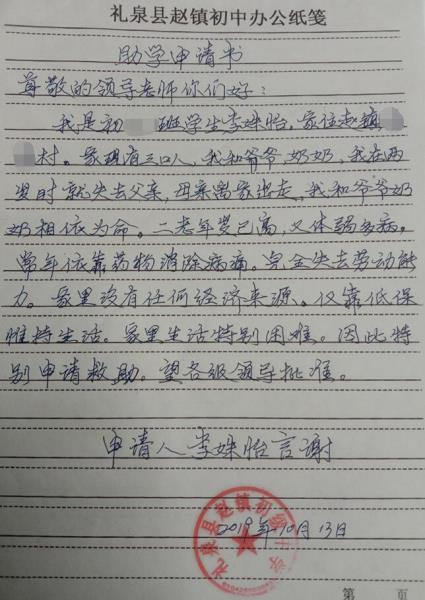 礼泉县赵镇初中办公纸笺
助学申请书
尊敬的领导老师你们好：
我是初 班学生李姝怡，家住赵镇
村。家现有三口人，我和爷爷，奶奶，我在两
岁时就失去父亲，母亲离家出走，我和爷爷奶
奶相依为命。二老年岁已高，又体弱多病，
常年依靠药物消除病痛。完全失去劳动能
力。家里没有任何经济来源。仅靠低保
维持生活。家里生活特别困难。因此特
别申请救助。望各级领导批准。
申请人李姝怡言谢
2019年10月13日
礼泉县赵镇初级中学
第 页